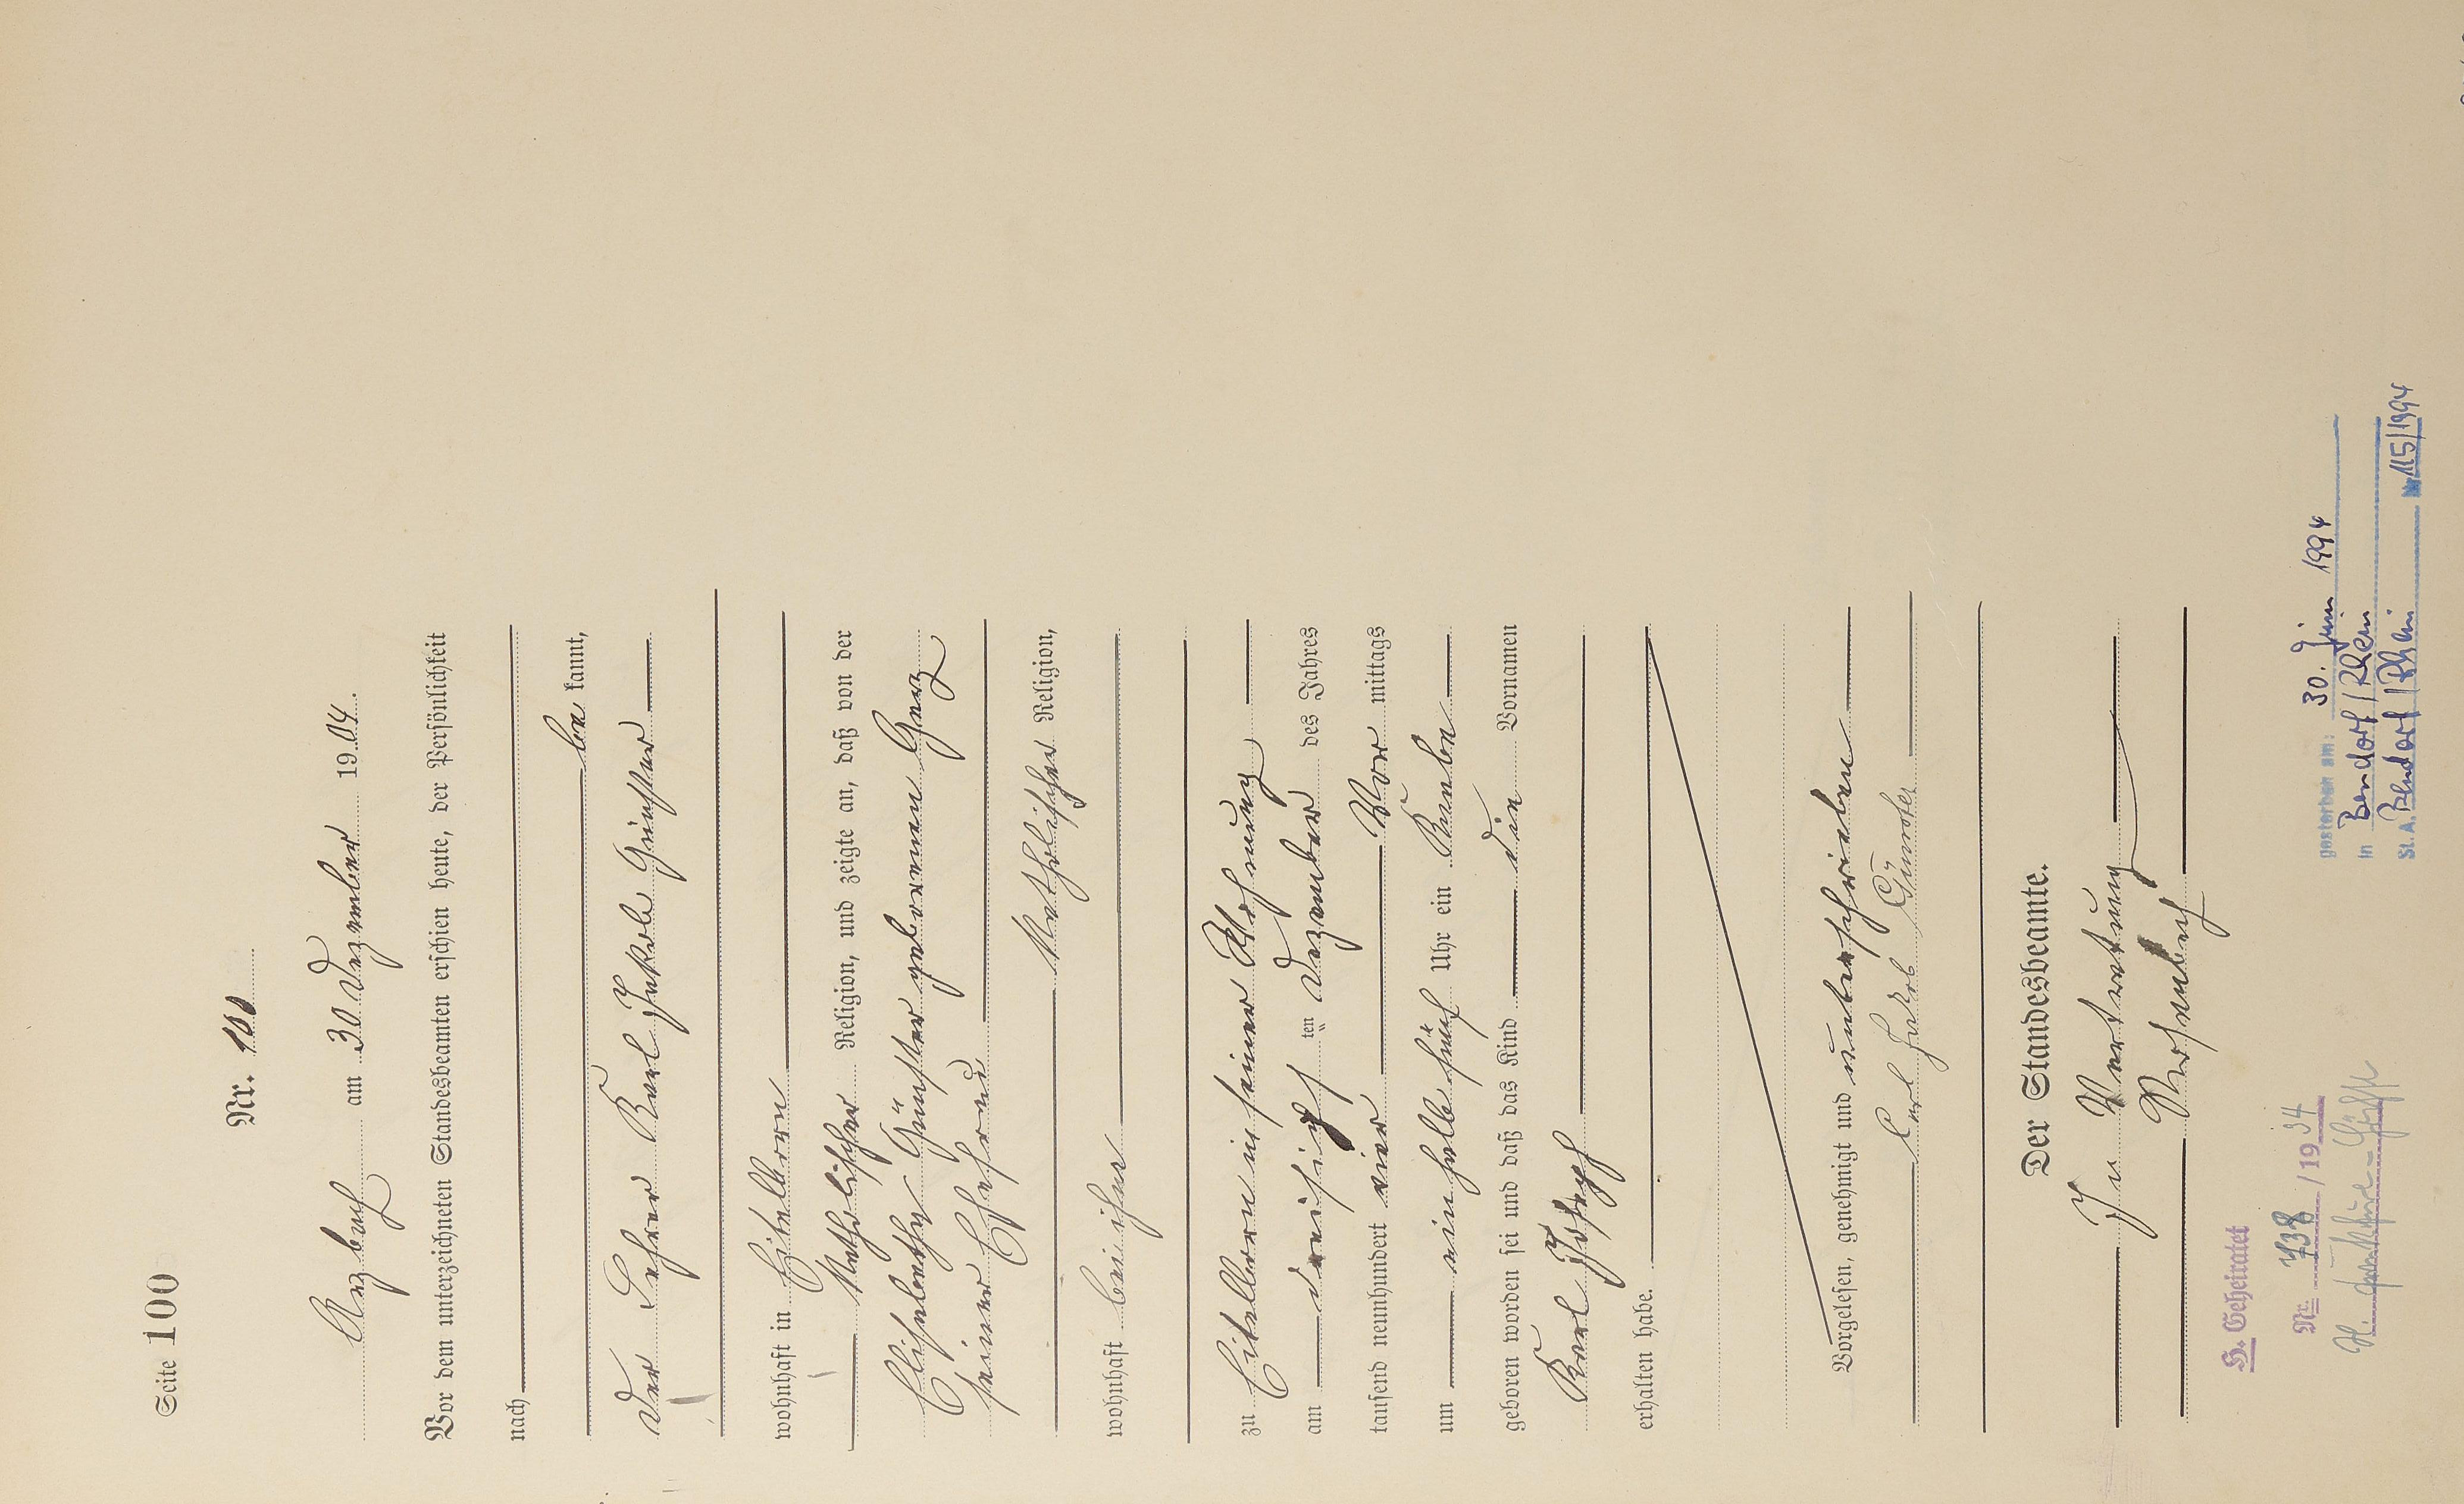 Seite 100
Nr. 100
Arzbach am 30 Dezember 1904.
Vor dem unterzeichneten Standesbeamten erschien heute, der Persönlichkeit
nach
be kannt,
der Lehrer Karl Jakob Günster
wohnhaft in Eitelborn
katholischer Religion, und zeigte an, daß von der
Elisabetha Günster geborenen Herz
seiner Ehefrau
katholischer Religion,
wohnhaft bei ihm
zu Eitelborn in seiner Wohnung
am dreißigsten Dezember des Jahres
tausend neunhundert vier Vor mittags
um ein halb fünf Uhr ein Knabe
geboren worden sei und daß das Kind die Vornamen
Karl Joseph
erhalten habe.
Vorgelesen, genehmigt und unterschrieben
Carl Jakob Günster
Der Standesbeamte.
In Vertretung
H. Geheiratet
Nr. 738 / 1934
gestorben am: 30. Juni 1994
in Bendorf / Rhein
St. A. Bendorf / Rhein Nr 115/1994